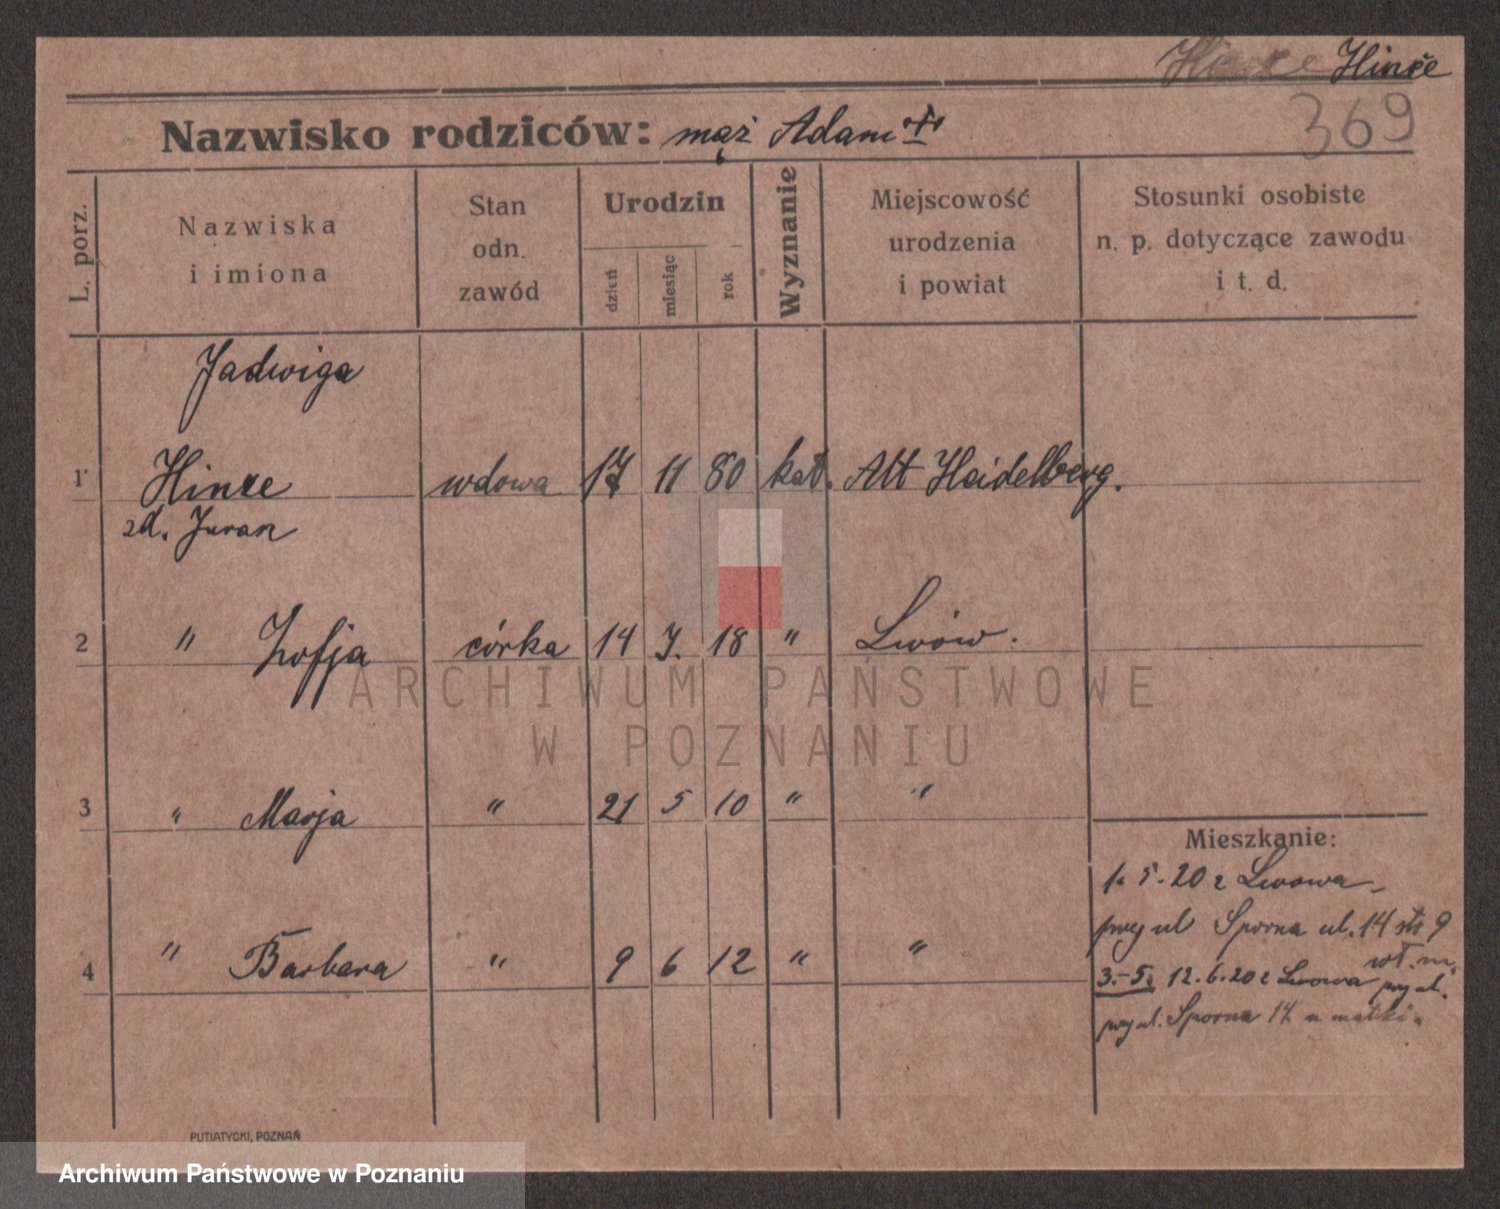 Hinze
369
Nazwisko rodziców: mąż Adam +
L. porz.
Nazwiska
i imiona
Stan
odn.
zawód
Urodzin
dzień
miesiąc
rok
Wyznanie
Miejscowość
urodzenia
i powiat
Stosunki osobiste
n. p. dotyczące zawodu
i t. d.
Jadwiga
1 Hinze wdowa 17 11 80 kat. Alt Heidelberg.
zd. Juran
2 " Zofja córka 14 7. 18 " Lwów.
3 " Marja " 21 5 10 " "
4 " Barbara " 9 6 12 " "
Mieszkanie:
1. 5. 20 z Lwowa
ul Sporna ul. 14 9
3.-5. 12.6.20 z Lwowa
Sporna 14 u matki.
PUTIATYCKI, POZNAŃ
ARCHIWUM PAŃSTWOWE
W POZNANIU
Archiwum Państwowe w Poznaniu